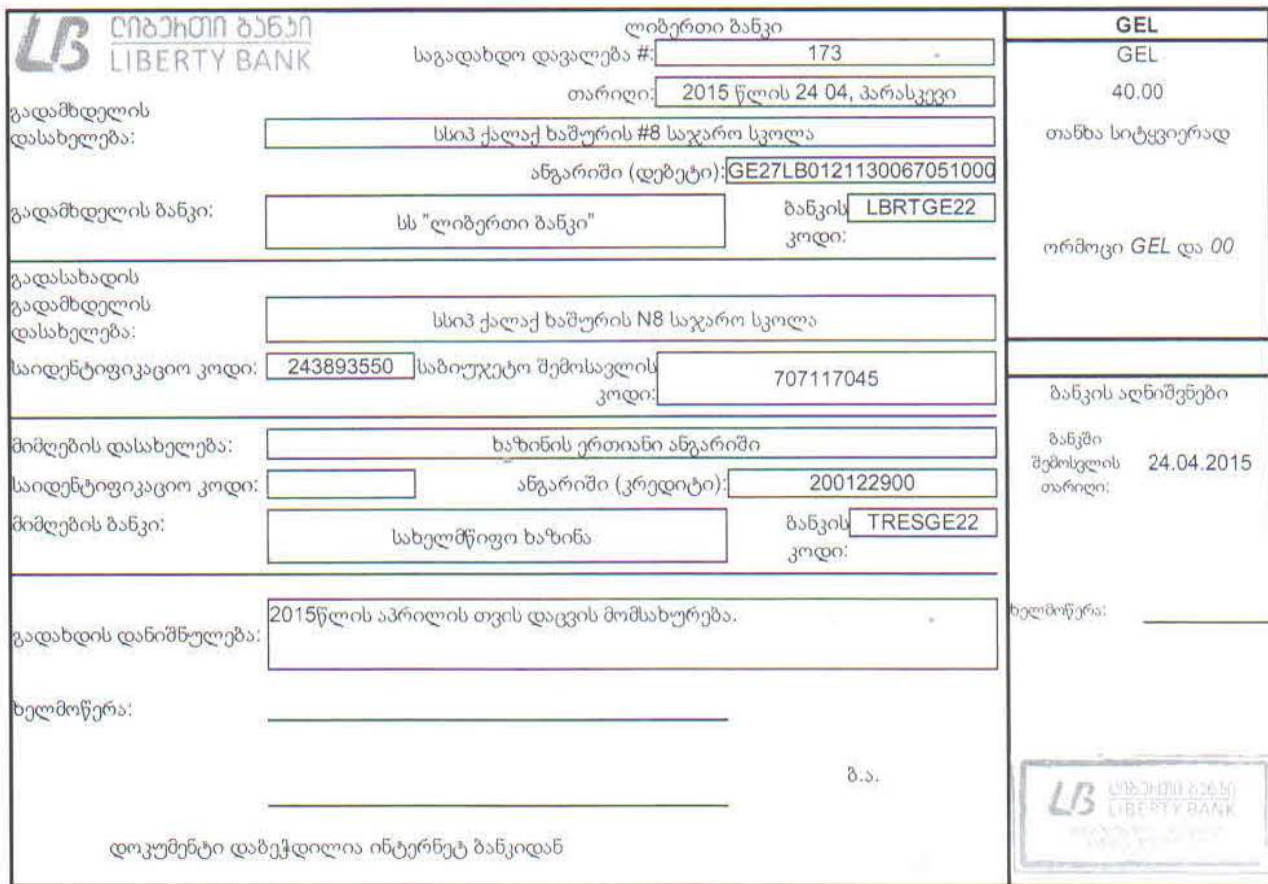 ლიბერთი ბანკი
LB ᲚᲘᲑᲔᲠᲗᲘ ᲑᲐᲜᲙᲘ
LIBERTY BANK
საგადახდო დავალება #: 173
თარიღი: 2015 წლის 24 04, პარასკევი
გადამხდელის
დასახელება: სსიპ ქალაქ ხაშურის #8 საჯარო სკოლა
ანგარიში (დებეტი): GE27LB0121130067051000
გადამხდელის ბანკი: სს "ლიბერთი ბანკი" ბანკის კოდი: LBRTGE22
გადასახადის
გადამხდელის
დასახელება: სსიპ ქალაქ ხაშურის N8 საჯარო სკოლა
საიდენტიფიკაციო კოდი: 243893550 საბიუჯეტო შემოსავლის კოდი: 707117045
მიმღების დასახელება: ხაზინის ერთიანი ანგარიში
საიდენტიფიკაციო კოდი: ანგარიში (კრედიტი): 200122900
მიმღების ბანკი: სახელმწიფო ხაზინა ბანკის კოდი: TRESGE22
გადახდის დანიშნულება: 2015წლის აპრილის თვის დაცვის მომსახურება.
ხელმოწერა:
ბ.ა.
დოკუმენტი დაბეჭდილია ინტერნეტ ბანკიდან
GEL
GEL
40.00
თანხა სიტყვიერად
ორმოცი GEL და 00
ბანკის აღნიშვნები
ბანკში
შემოსვლის 24.04.2015
თარიღი:
ხელმოწერა:
LB ᲚᲘᲑᲔᲠᲗᲘ ᲑᲐᲜᲙᲘ
LIBERTY BANK